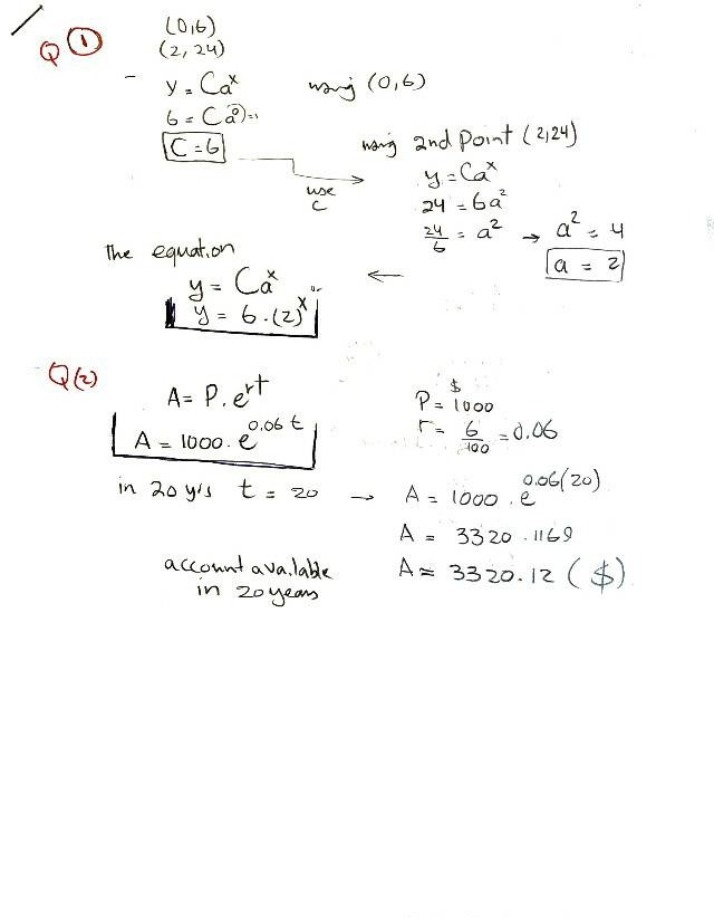 Q ①
(0,6)
(2, 24)
- y = Ca^x using (0,6)
6 = C a^0 =1
C = 6
use C
using 2nd Point (2,24)
y = Ca^x
24 = 6a^2
24/6 = a^2 → a^2 = 4
a = 2
The equation
y = Ca^x or
y = 6.(2)^x
Q(2)
A = P.e^rt
A = 1000.e^0.06t
P = $1000
r = 6/100 = 0.06
in 20 yrs t = 20 → A = 1000.e^0.06(20)
A = 3320.1169
account available in 20 years
A ≈ 3320.12 ($)